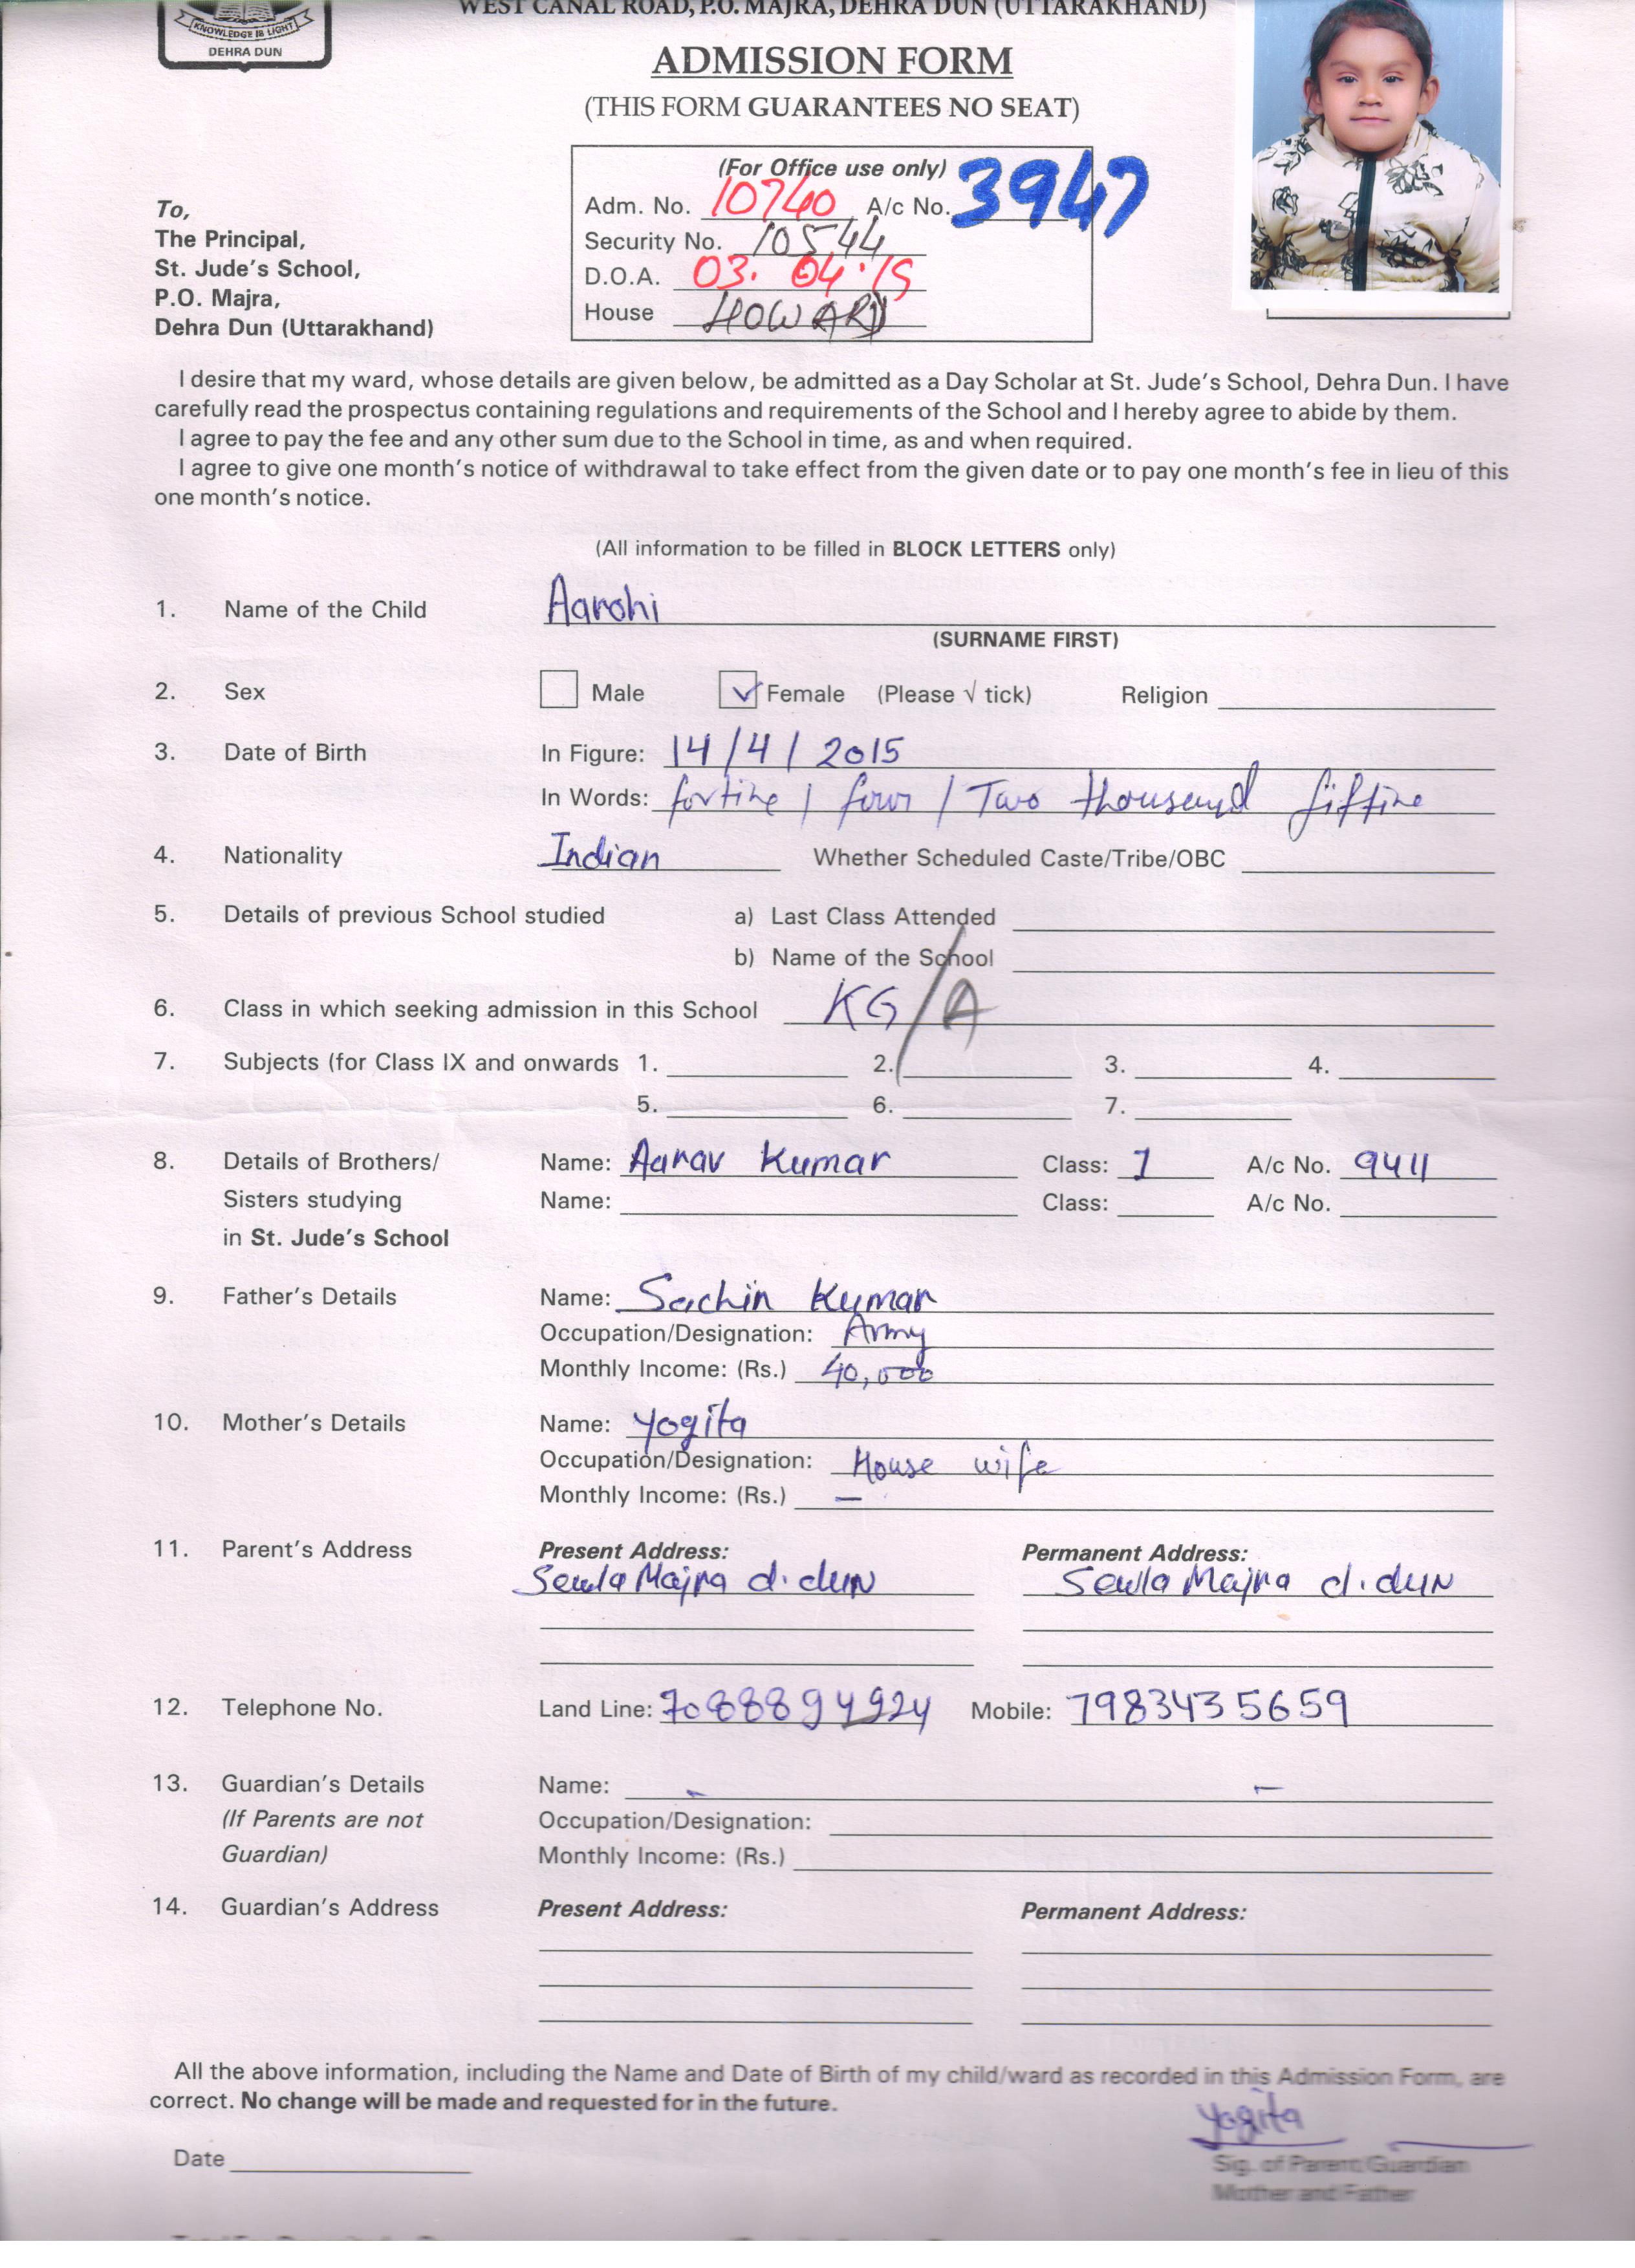 WEST CANAL ROAD, P.O. MAJRA, DEHRA DUN (UTTARAKHAND)
KNOWLEDGE IS LIGHT
DEHRA DUN
ADMISSION FORM
(THIS FORM GUARANTEES NO SEAT)
(For Office use only)
Adm. No. 10740 A/c No. 3947
Security No. 10544
D.O.A. 03. 04.19
House HOWARD
To,
The Principal,
St. Jude's School,
P.O. Majra,
Dehra Dun (Uttarakhand)
I desire that my ward, whose details are given below, be admitted as a Day Scholar at St. Jude's School, Dehra Dun. I have
carefully read the prospectus containing regulations and requirements of the School and I hereby agree to abide by them.
I agree to pay the fee and any other sum due to the School in time, as and when required.
I agree to give one month's notice of withdrawal to take effect from the given date or to pay one month's fee in lieu of this
one month's notice.
(All information to be filled in BLOCK LETTERS only)
1. Name of the Child Aarohi
(SURNAME FIRST)
2. Sex Male Female (Please √ tick) Religion
3. Date of Birth In Figure: 14/4/2015
In Words: fortine / four / Two thousand fiftine
4. Nationality Indian Whether Scheduled Caste/Tribe/OBC
5. Details of previous School studied a) Last Class Attended
b) Name of the School
6. Class in which seeking admission in this School KG/A
7. Subjects (for Class IX and onwards 1. 2. 3. 4.
5. 6. 7.
8. Details of Brothers/ Name: Aarav Kumar Class: 1 A/c No. 9411
Sisters studying Name: Class: A/c No.
in St. Jude's School
9. Father's Details Name: Sachin Kumar
Occupation/Designation: Army
Monthly Income: (Rs.) 40,000
10. Mother's Details Name: Yogita
Occupation/Designation: House wife
Monthly Income: (Rs.) —
11. Parent's Address Present Address: Permanent Address:
Sewla Majra d.dun Sewla Majra d.dun
12. Telephone No. Land Line: 7088894924 Mobile: 7983435659
13. Guardian's Details Name: - -
(If Parents are not Occupation/Designation:
Guardian) Monthly Income: (Rs.)
14. Guardian's Address Present Address: Permanent Address:
All the above information, including the Name and Date of Birth of my child/ward as recorded in this Admission Form, are
correct. No change will be made and requested for in the future.
Yogita
Date
Sig. of Parent/Guardian
Mother and Father